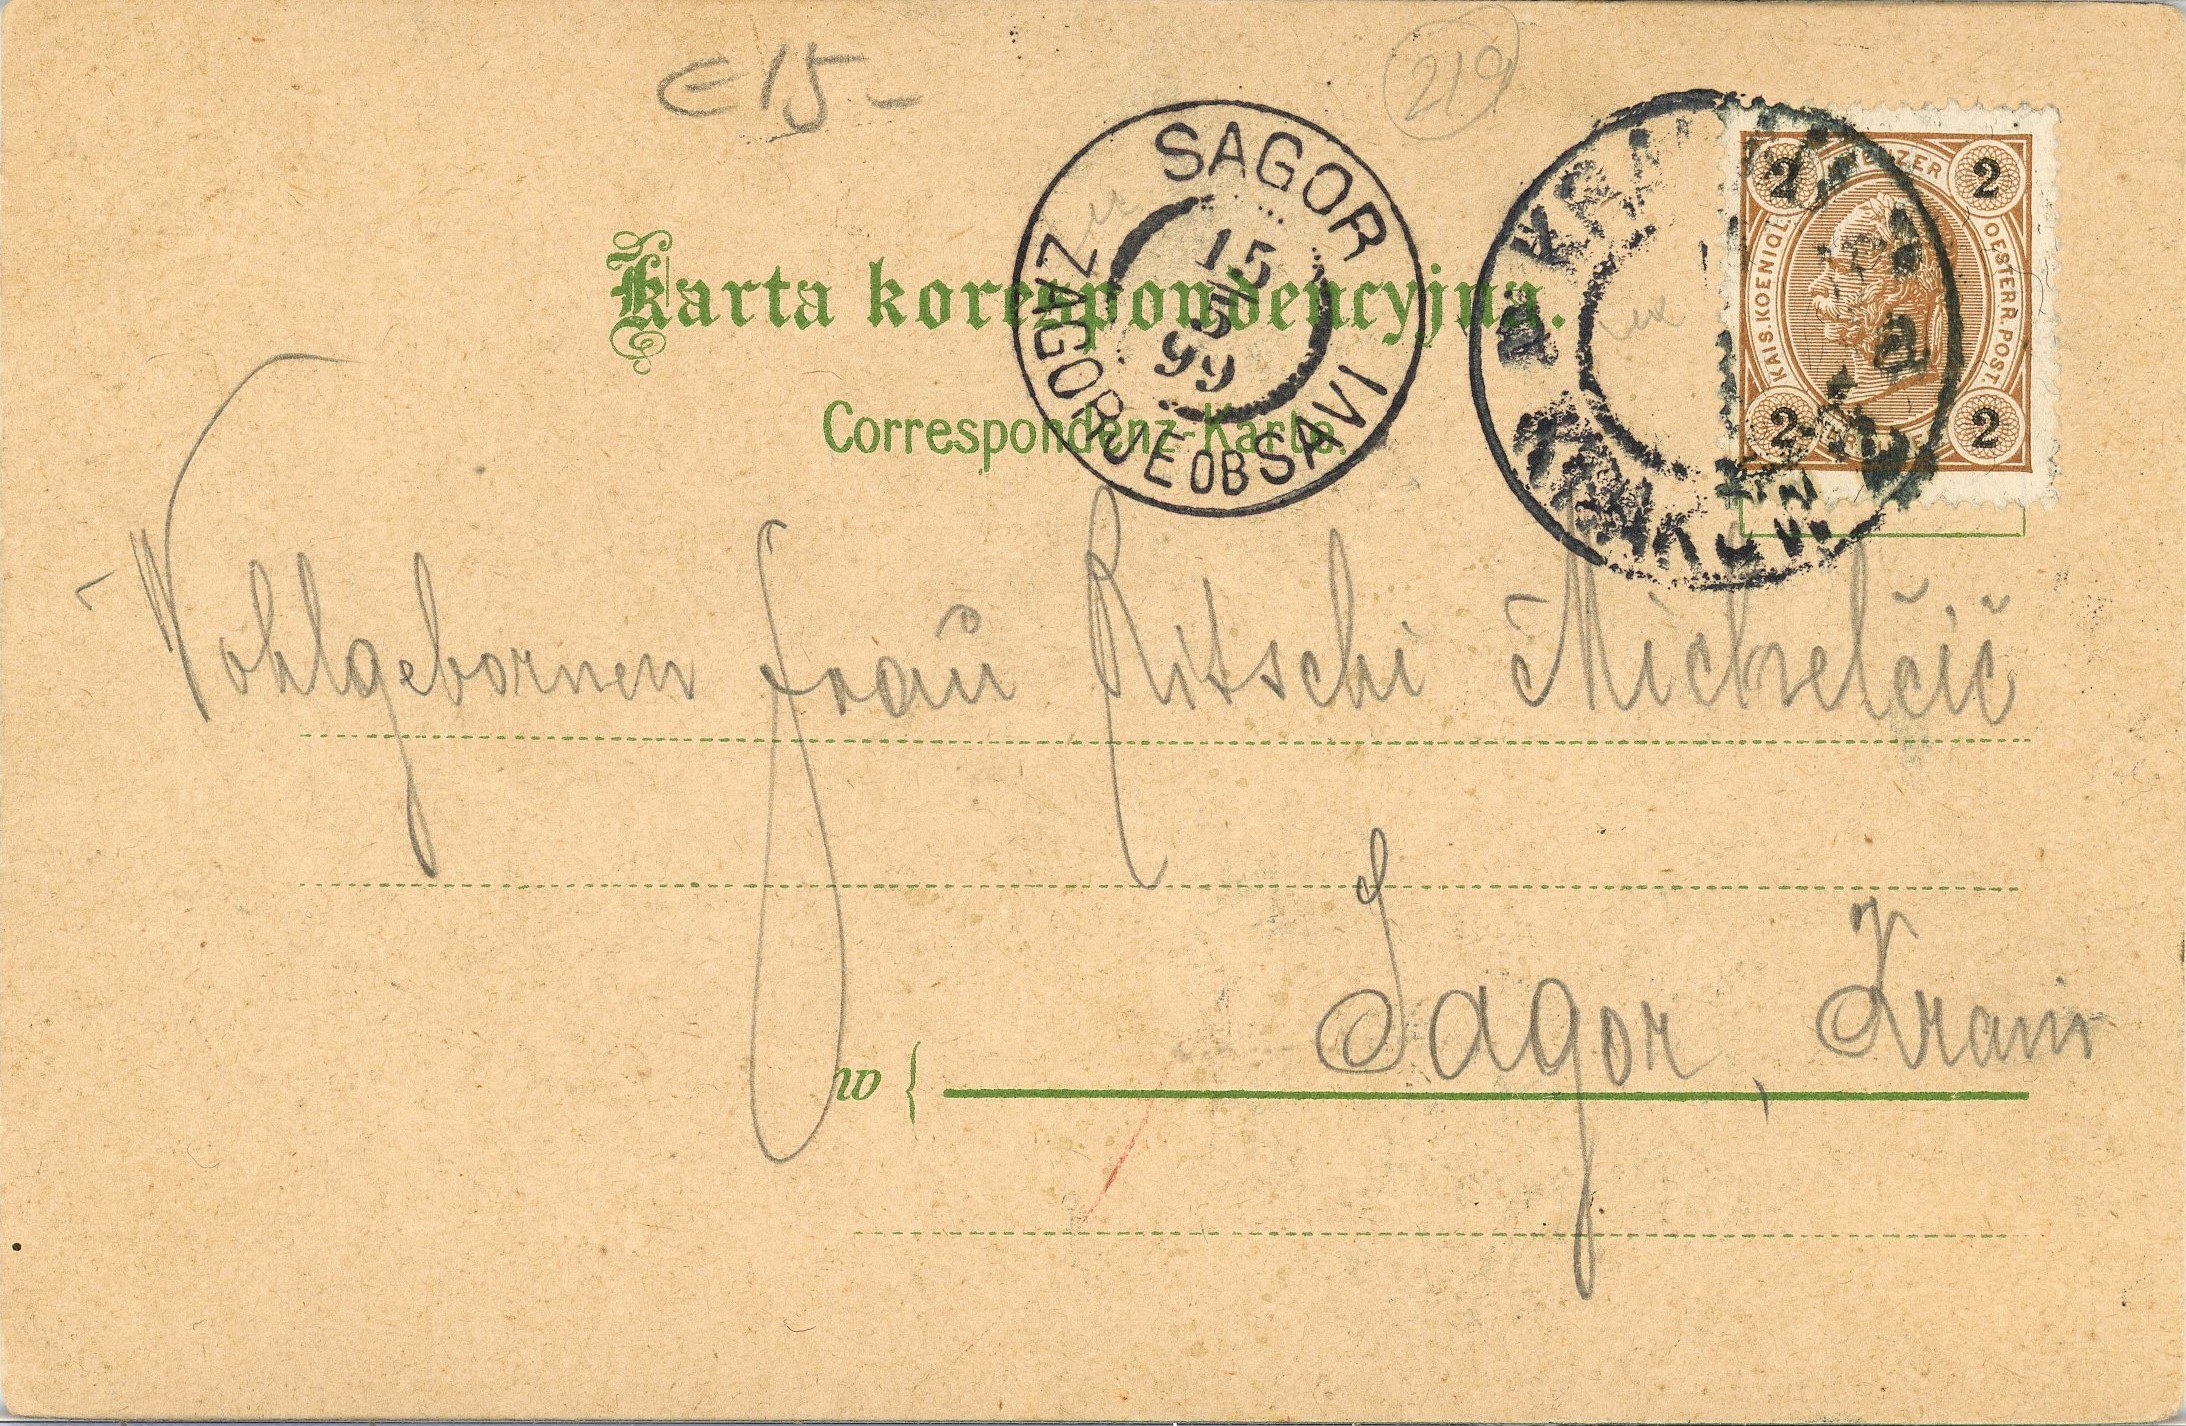 E 15 -
219
SAGOR
15
5
99
ZAGORJE OB SAVI
2 2
KAIS. KOENIGL. OESTERR. POST.
2 2
Karta korespondencyjna.
Correspondenz-Karte.
Wohlgebornen Frau Ritschi Michelčič
w { Sagor, Krain